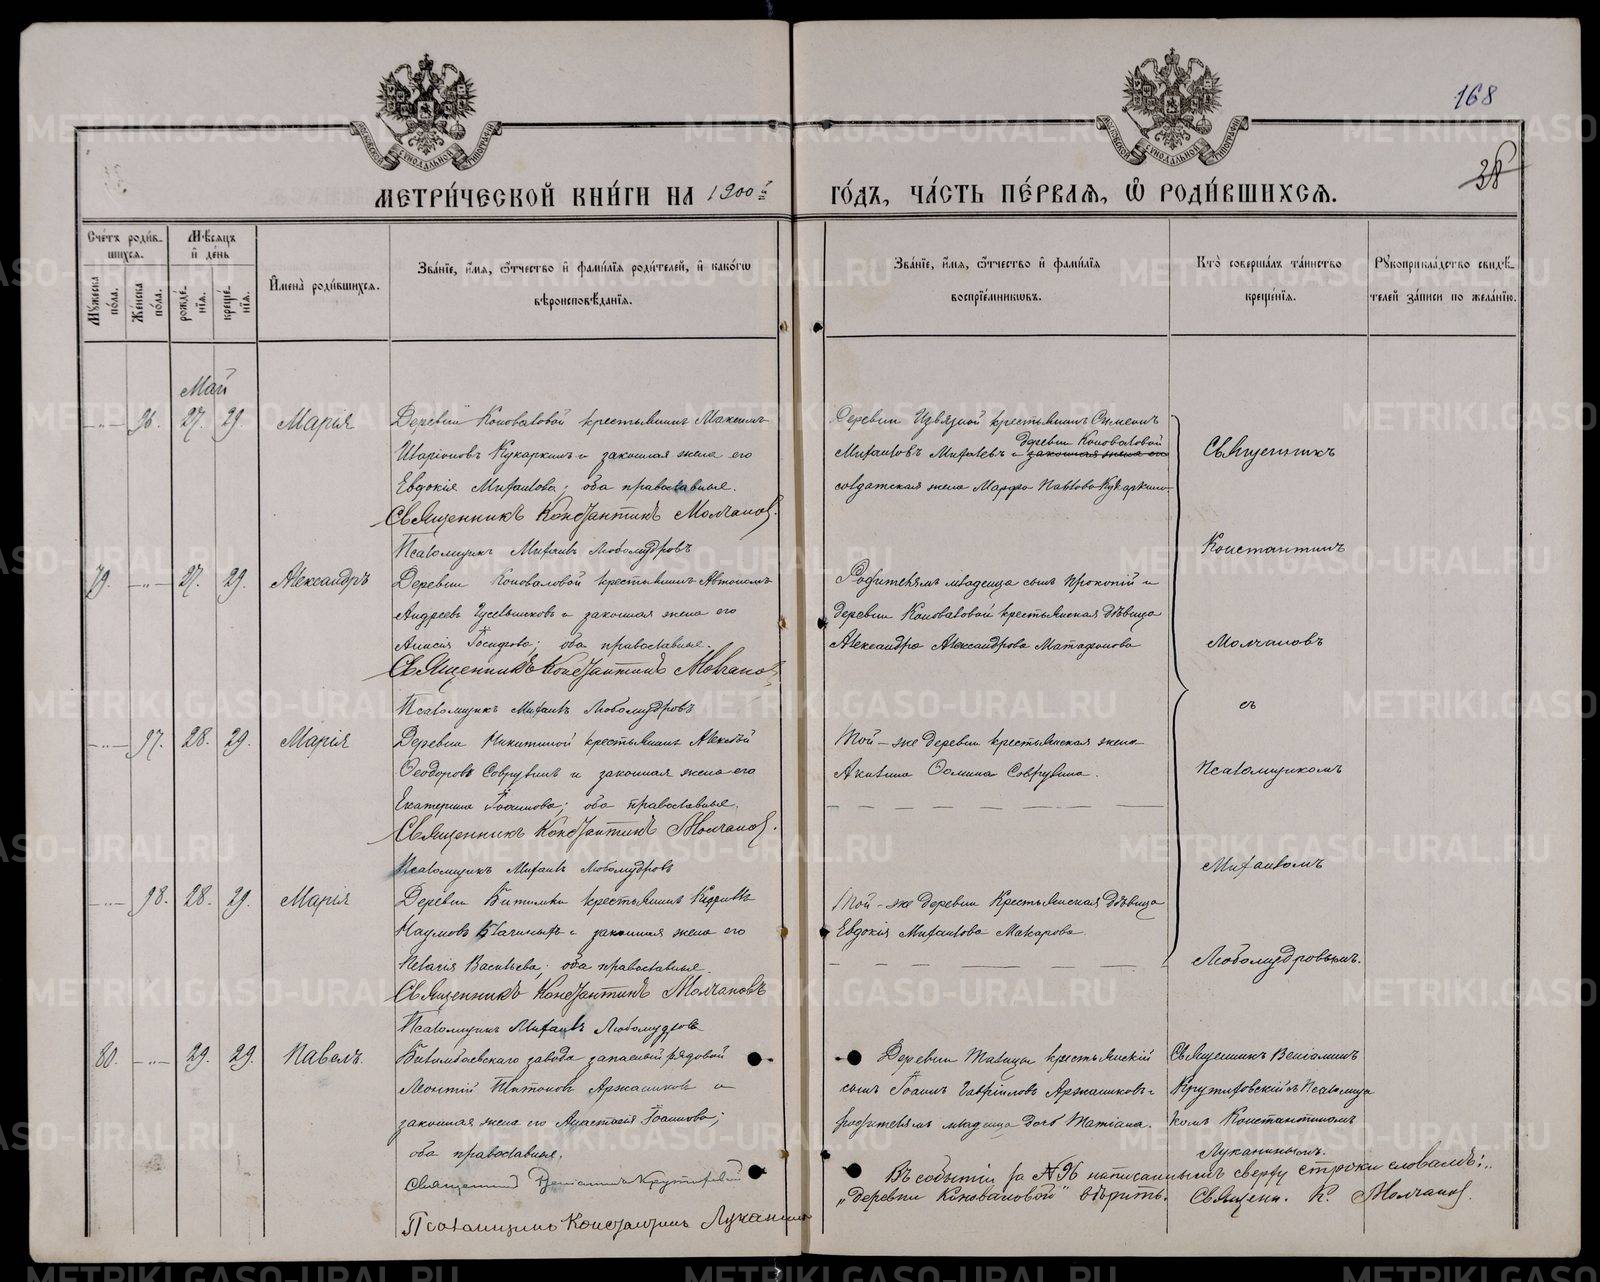 168
38
МЕТРИЧЕСКОЙ КНИГИ НА 1900й ГОДЪ, ЧАСТЬ ПЕРВАЯ, Ѡ РОДИВШИХСЯ.
Счетъ родившихся.
Мужеска пола.
Женска пола.
Мѣсяцъ и день
рожденія.
крещенія.
Имена родившихся.
Званіе, имя, отчество и фамилія родителей, и какого вѣроисповѣданія.
Званіе, имя, отчество и фамилія воспріемниковъ.
Кто совершалъ таинство крещенія.
Рукоприкладство свидѣтелей записи по желанію.
Май
96. 27. 29. Марія
Деревни Коноваловой крестьянинъ Максимъ
Иларіоновъ Кукаркинъ и законная жена его
Евдокія Михаилова; оба православные.
Священникъ Константинъ Молчановъ.
Псаломщикъ Михаилъ Любомудровъ
крестьянинъ Симеонъ
Михаиловъ Михалевъ и деревни Коноваловой
законная жена его
солдатская жена Марфа Павлова Кукаркина
79. 27. 29. Александръ
Деревни Коноваловой крестьянинъ Автономъ
Андреевъ Гусельниковъ и законная жена его
Анисія Іосифова; оба православные.
Священникъ Константинъ Молчановъ
Псаломщикъ Михаилъ Любомудровъ
Родителямъ младенца сынъ Прокопій и
деревни Коноваловой крестьянская дѣвица
Александра Александрова Матафонова
97. 28. 29. Марія
Деревни Никитиной крестьянинъ Алексѣй
Ѳеодоровъ и законная жена его
Екатерина Іоаннова; оба православные.
Священникъ Константинъ Молчановъ.
Псаломщикъ Михаилъ Любомудровъ
Той-же деревни крестьянская жена
Акилина Ѳомина
98. 28. 29. Марія
Деревни Битимки крестьянинъ Кириллъ
Наумовъ и законная жена его
Пелагія Васильева; оба православные.
Священникъ Константинъ Молчановъ
Псаломщикъ Михаилъ Любомудровъ
Той-же деревни Крестьянская дѣвица
Евдокія Михаилова Макарова.
Священникъ
Константинъ
Молчановъ
съ
Псаломщикомъ
Михаиломъ
Любомудровымъ.
80. 29. 29. Павелъ.
Билимбаевскаго завода запасный рядовой
Леонтій Титоновъ Аржанниковъ и
законная жена его Анастасія Іоаннова;
оба православные.
Священникъ Веніаминъ Крутиховскій
Псаломщикъ Константинъ Луканинъ
Деревни Талицы крестьянскій
сынъ Іоаннъ Гавріиловъ Аржанниковъ и
родителямъ младенца дочь Татіана.
Священникъ Веніаминъ
Крутиховскій съ Псаломщи
комъ Константиномъ
Луканинымъ.
Въ событіи за №96 написаннымъ сверху строки словамъ:
„деревни Коноваловой" вѣрить. Священ. К. Молчановъ.
METRIKI.GASO-URAL.RU